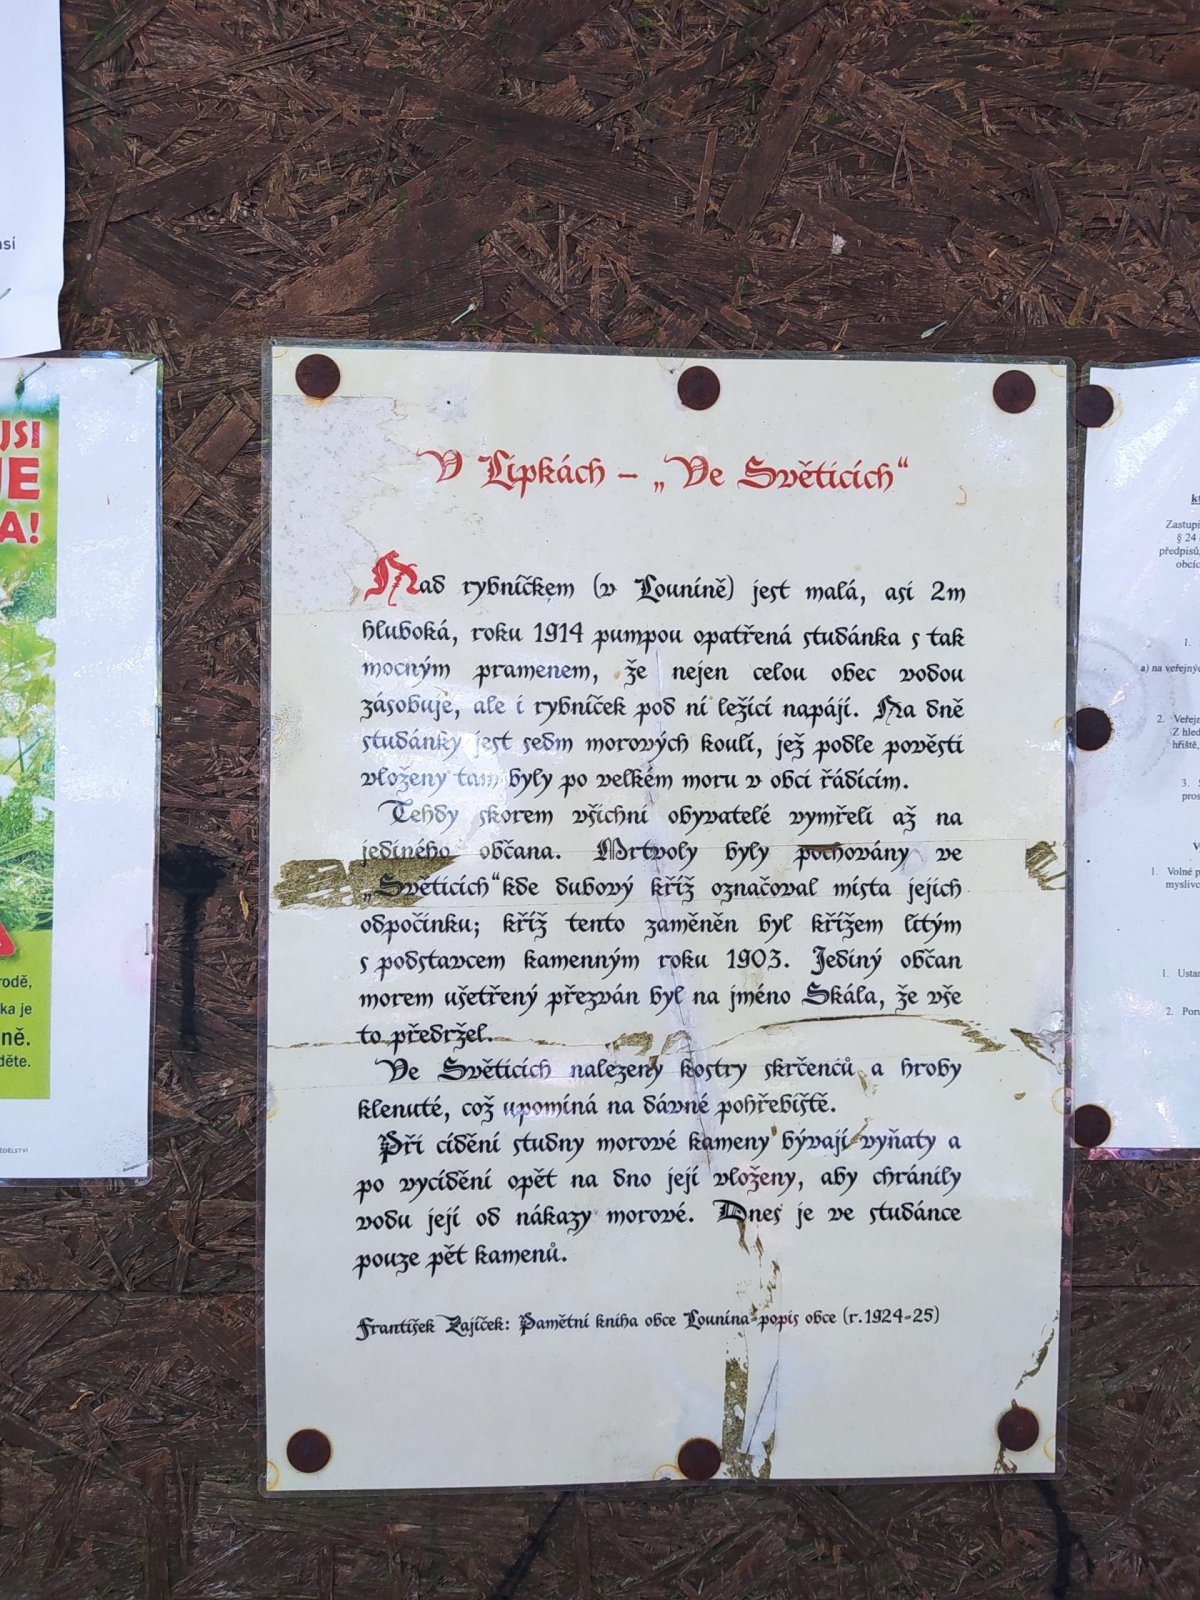 así
USI
JE
A!
rodě,
ka je
ně.
děte.
EDĚLSTVÍ
V Lipkách – „Ve Světicích“
Nad rybníčkem (v Lounině) jest malá, asi 2m
hluboká, roku 1914 pumpou opatřená studánka s tak
mocným pramenem, že nejen celou obec vodou
zásobuje, ale i rybníček pod ní ležící napájí. Na dně
studánky jest sedm morových koulí, jež podle pověsti
vloženy tam byly po velkém moru v obci řádícím.
Tehdy skorem všichni obyvatelé vymřeli až na
jediného občana. Mrtvoly byly pochovány ve
„Světicích“kde dubový kříž označoval místa jejich
odpočinku; kříž tento zaměněn byl křížem litým
s podstavcem kamenným roku 1903. Jediný občan
morem ušetřený přezván byl na jméno Skála, že vše
to předržel.
Ve Světicích nalezeny kostry skrčenců a hroby
klenuté, což upomíná na dávné pohřebiště.
Při cídění studny morové kameny bývají vyňaty a
po vycídění opět na dno její vloženy, aby chránily
vodu její od nákazy morové. Dnes je ve studánce
pouze pět kamenů.
František Zajíček: Pamětní kniha obce Lounína-popis obce (r.1924-25)
Zastupi
§ 24
předpisů,
obcíc
1.
a) na veřejnýc
2. Veřejn
Z hled
hřiště,
3.
pros
1. Volné p
myslivc
1. Ustan
2. Poru